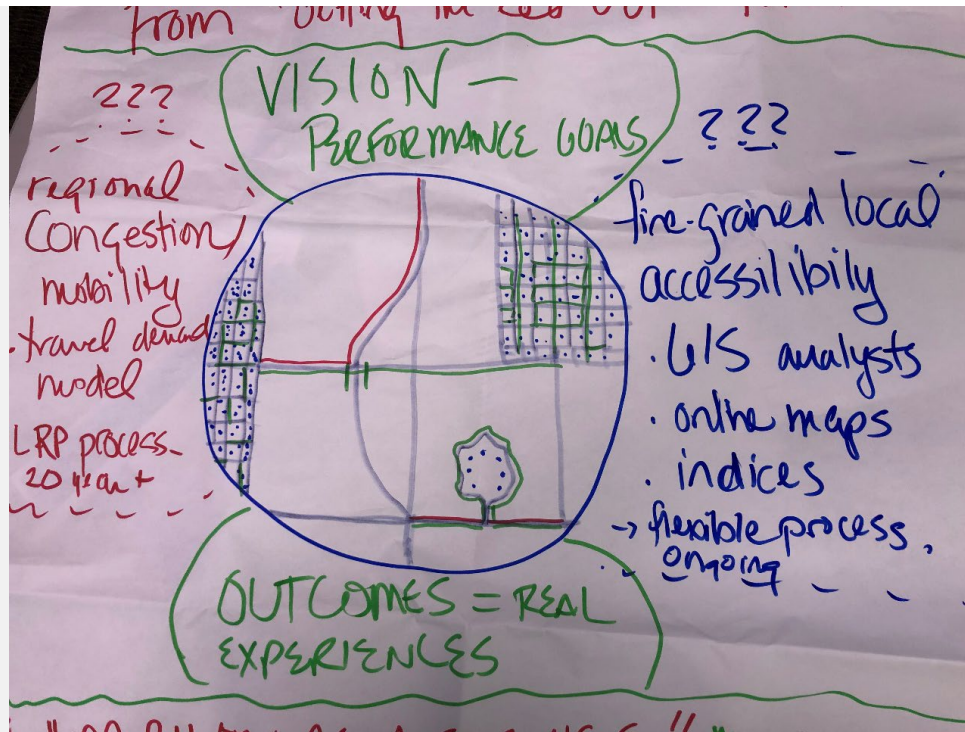 from
VISION —
PERFORMANCE GOALS
???
regional
Congestion/
mobility
. travel demand
model
LRP process -
20 year +
???
fine-grained local
accessilibily
. GIS analysts
. online maps
. indices
→ flexible process,
ongoing
OUTCOMES = REAL
EXPERIENCES